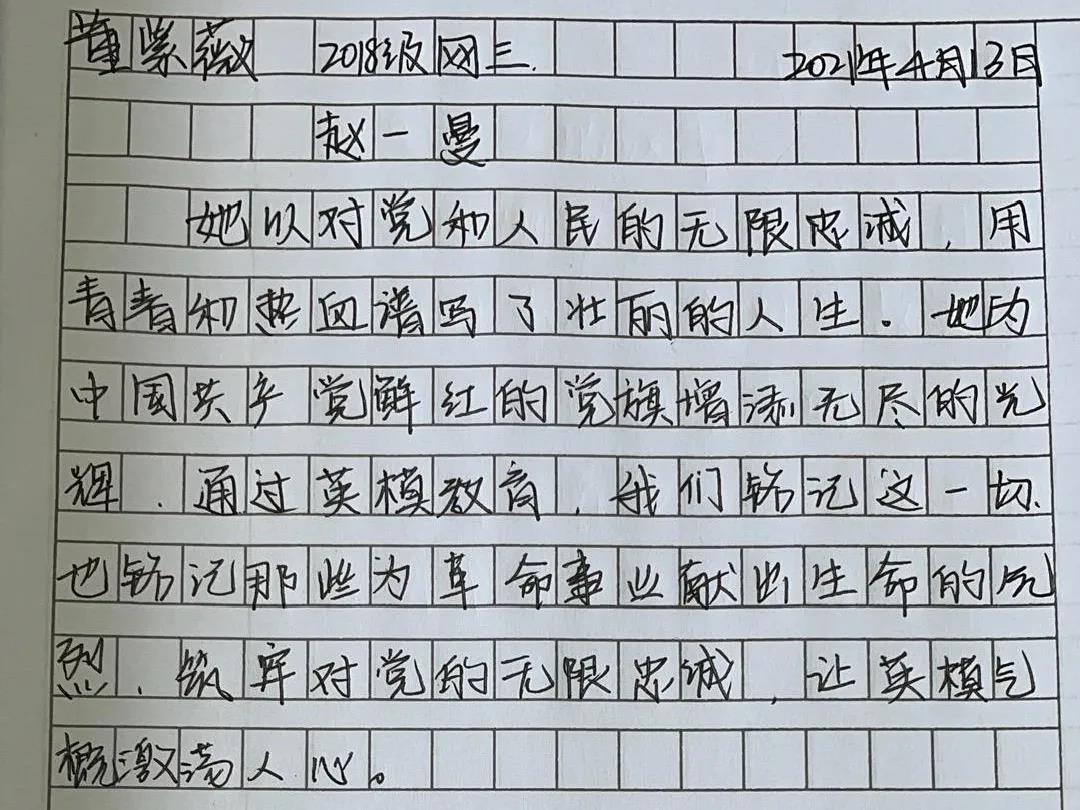 董紫薇 2018级网三. 2021年4月13日
赵一曼
她以对党和人民的无限忠诚,用
青春和热血谱写了壮丽的人生。她为
中国共产党鲜红的党旗增添无尽的光
辉.通过英模教育,我们铭记这一切.
也铭记那些为革命事业献出生命的先
烈.筑牢对党的无限忠诚,让英模气
概激荡人心。